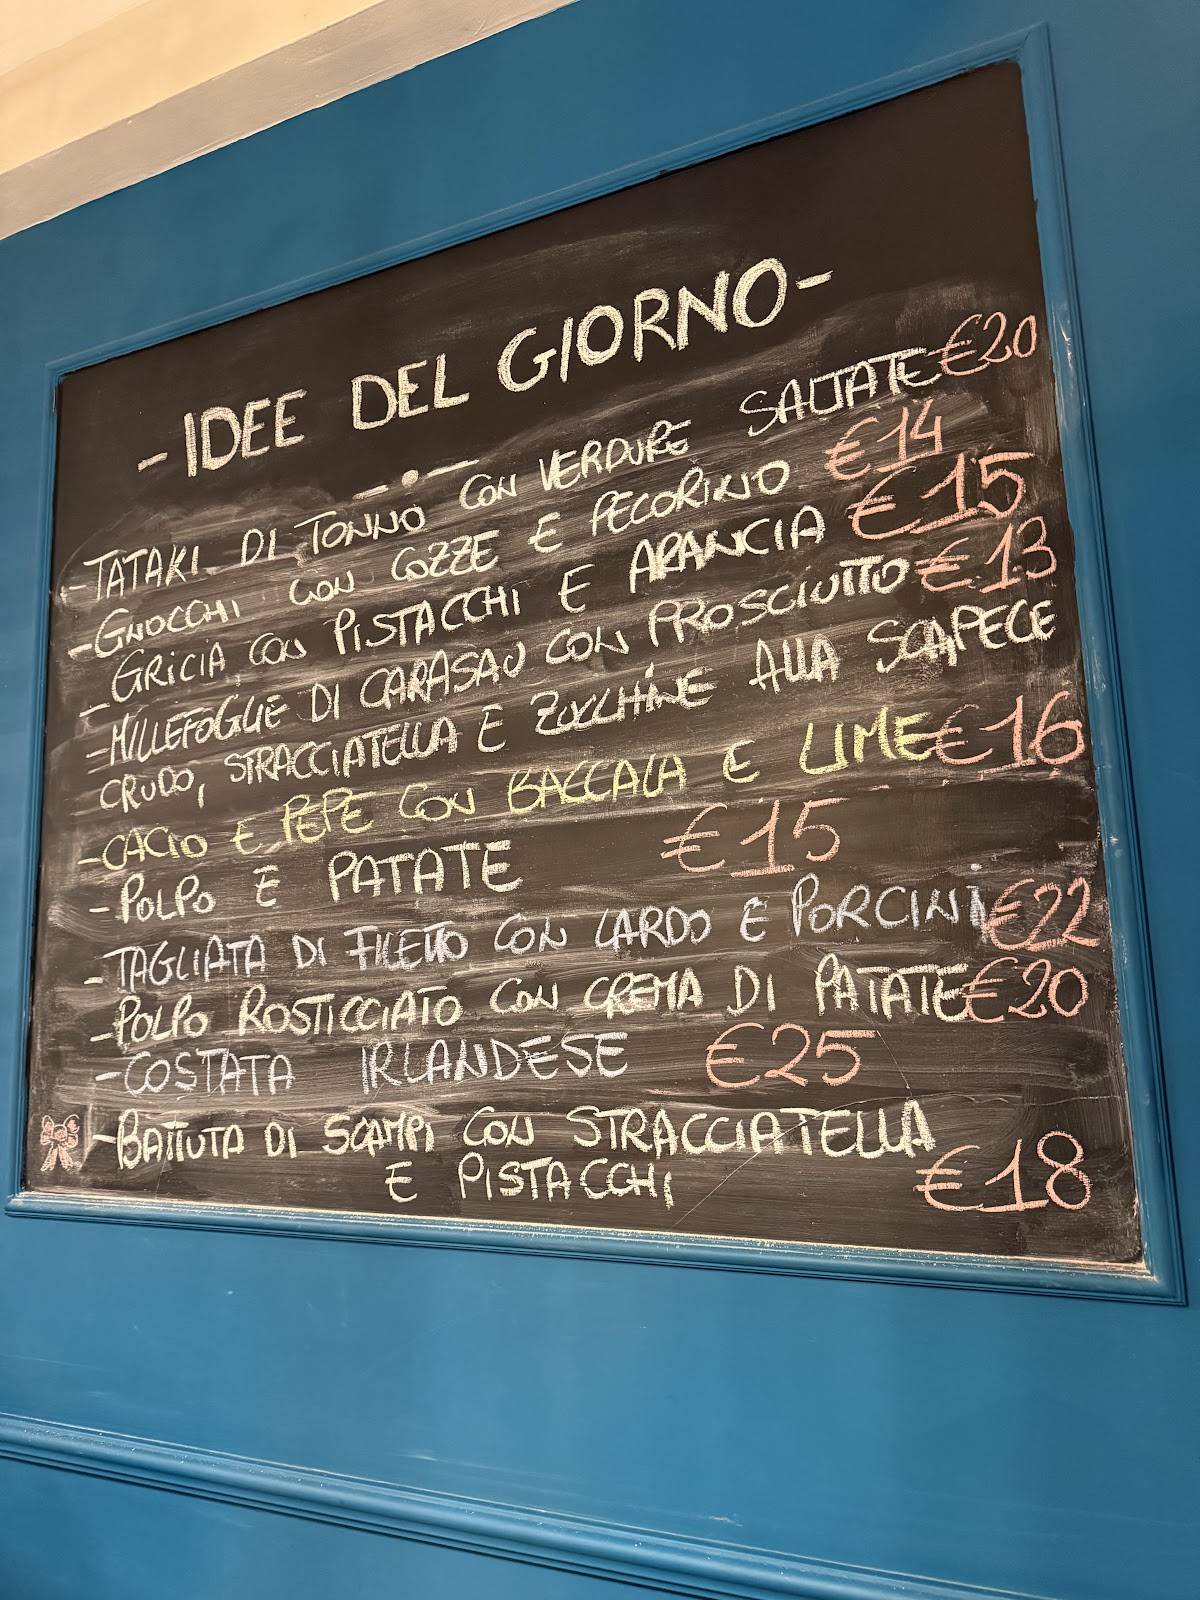 - IDEE DEL GIORNO -
- TATAKI DI TONNO CON VERDURE SALTATE €20
- GNOCCHI CON COZZE E PECORINO €14
- GRICIA CON PISTACCHI E ARANCIA €15
- MILLEFOGLIE DI CARASAU CON PROSCIUTTO €13
CRUDO, STRACCIATELLA E ZUCCHINE ALLA SCAPECE
- CACIO E PEPE CON BACCALA E LIME €16
- POLPO E PATATE €15
- TAGLIATA DI FILETTO CON LARDO E PORCINI €22
- POLPO ROSTICCIATO CON CREMA DI PATATE €20
- COSTATA IRLANDESE €25
- BATTUTA DI SCAMPI CON STRACCIATELLA
E PISTACCHI €18